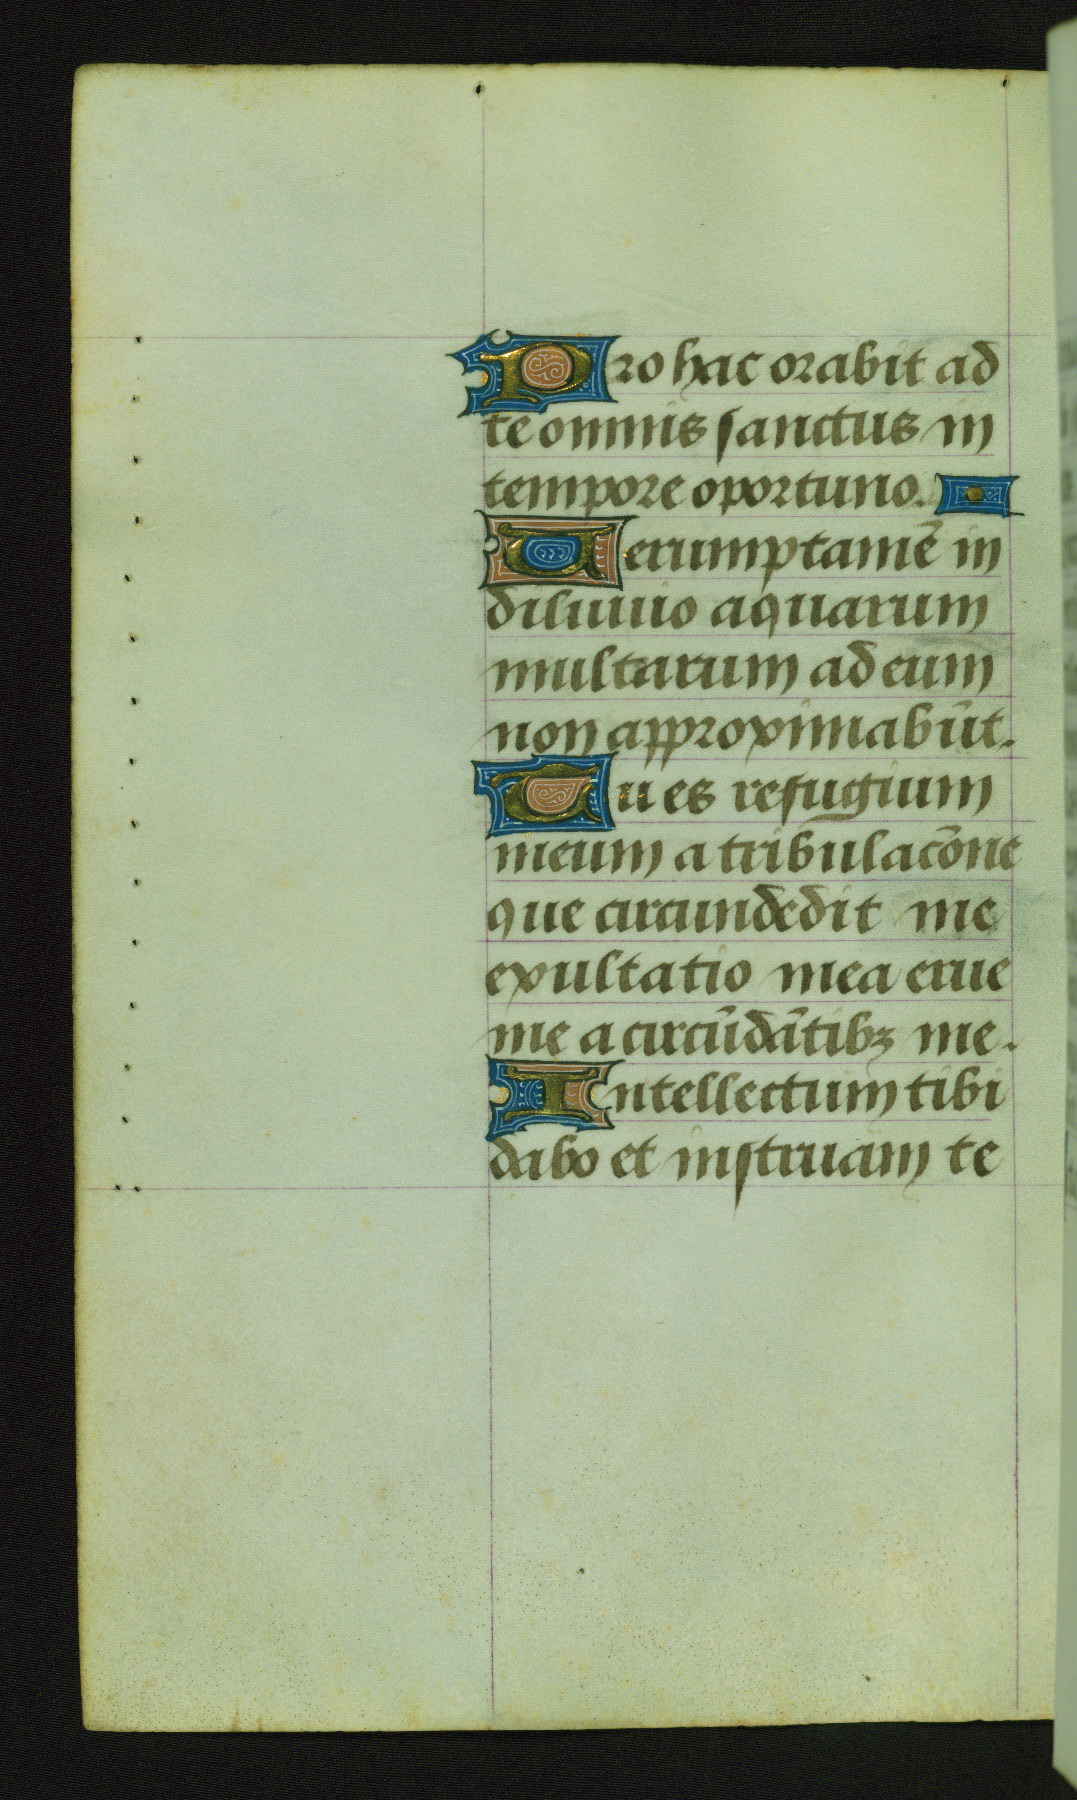 Pro hac orabit ad
te omnis sanctus in
tempore oportuno.
Uerumptamē in
diluuio aquarum
multarum ad eum
non approximabūt.
Tu es refugium
meum a tribulacōne
que circumdedit me
exultatio mea erue
me a circūdātibꝫ me.
Intellectum tibi
dabo et instruam te